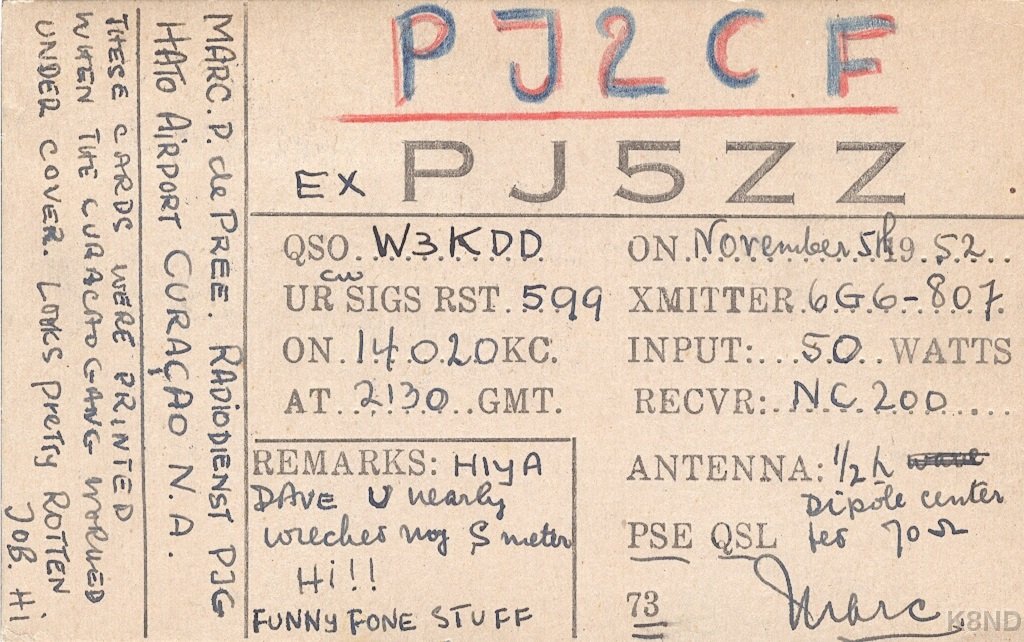 PJ2CF
EX PJ5ZZ
QSO. W3KDD
ON November 5th 19 52
UR cw SIGS RST. 599
XMITTER 6G6-807.
ON. 14020 KC.
INPUT: 50 WATTS
AT 2130 GMT.
RECVR: NC 200
REMARKS: HIYA
DAVE U nearly
wrecked my S meter
Hi!!
FUNNY FONE STUFF
ANTENNA: 1/2 λ wave
Dipole center
PSE QSL fed 70 Ω
73 Marc
MARC. P. de PREE. RADIODIENST PJG
HATO AIRPORT CURAÇAO N.A.
THESE CARDS WERE PRINTED
WHEN THE CURACAO GANG WORKED
UNDER COVER. LOOKS PRETTY ROTTEN
JOB. Hi
K8ND